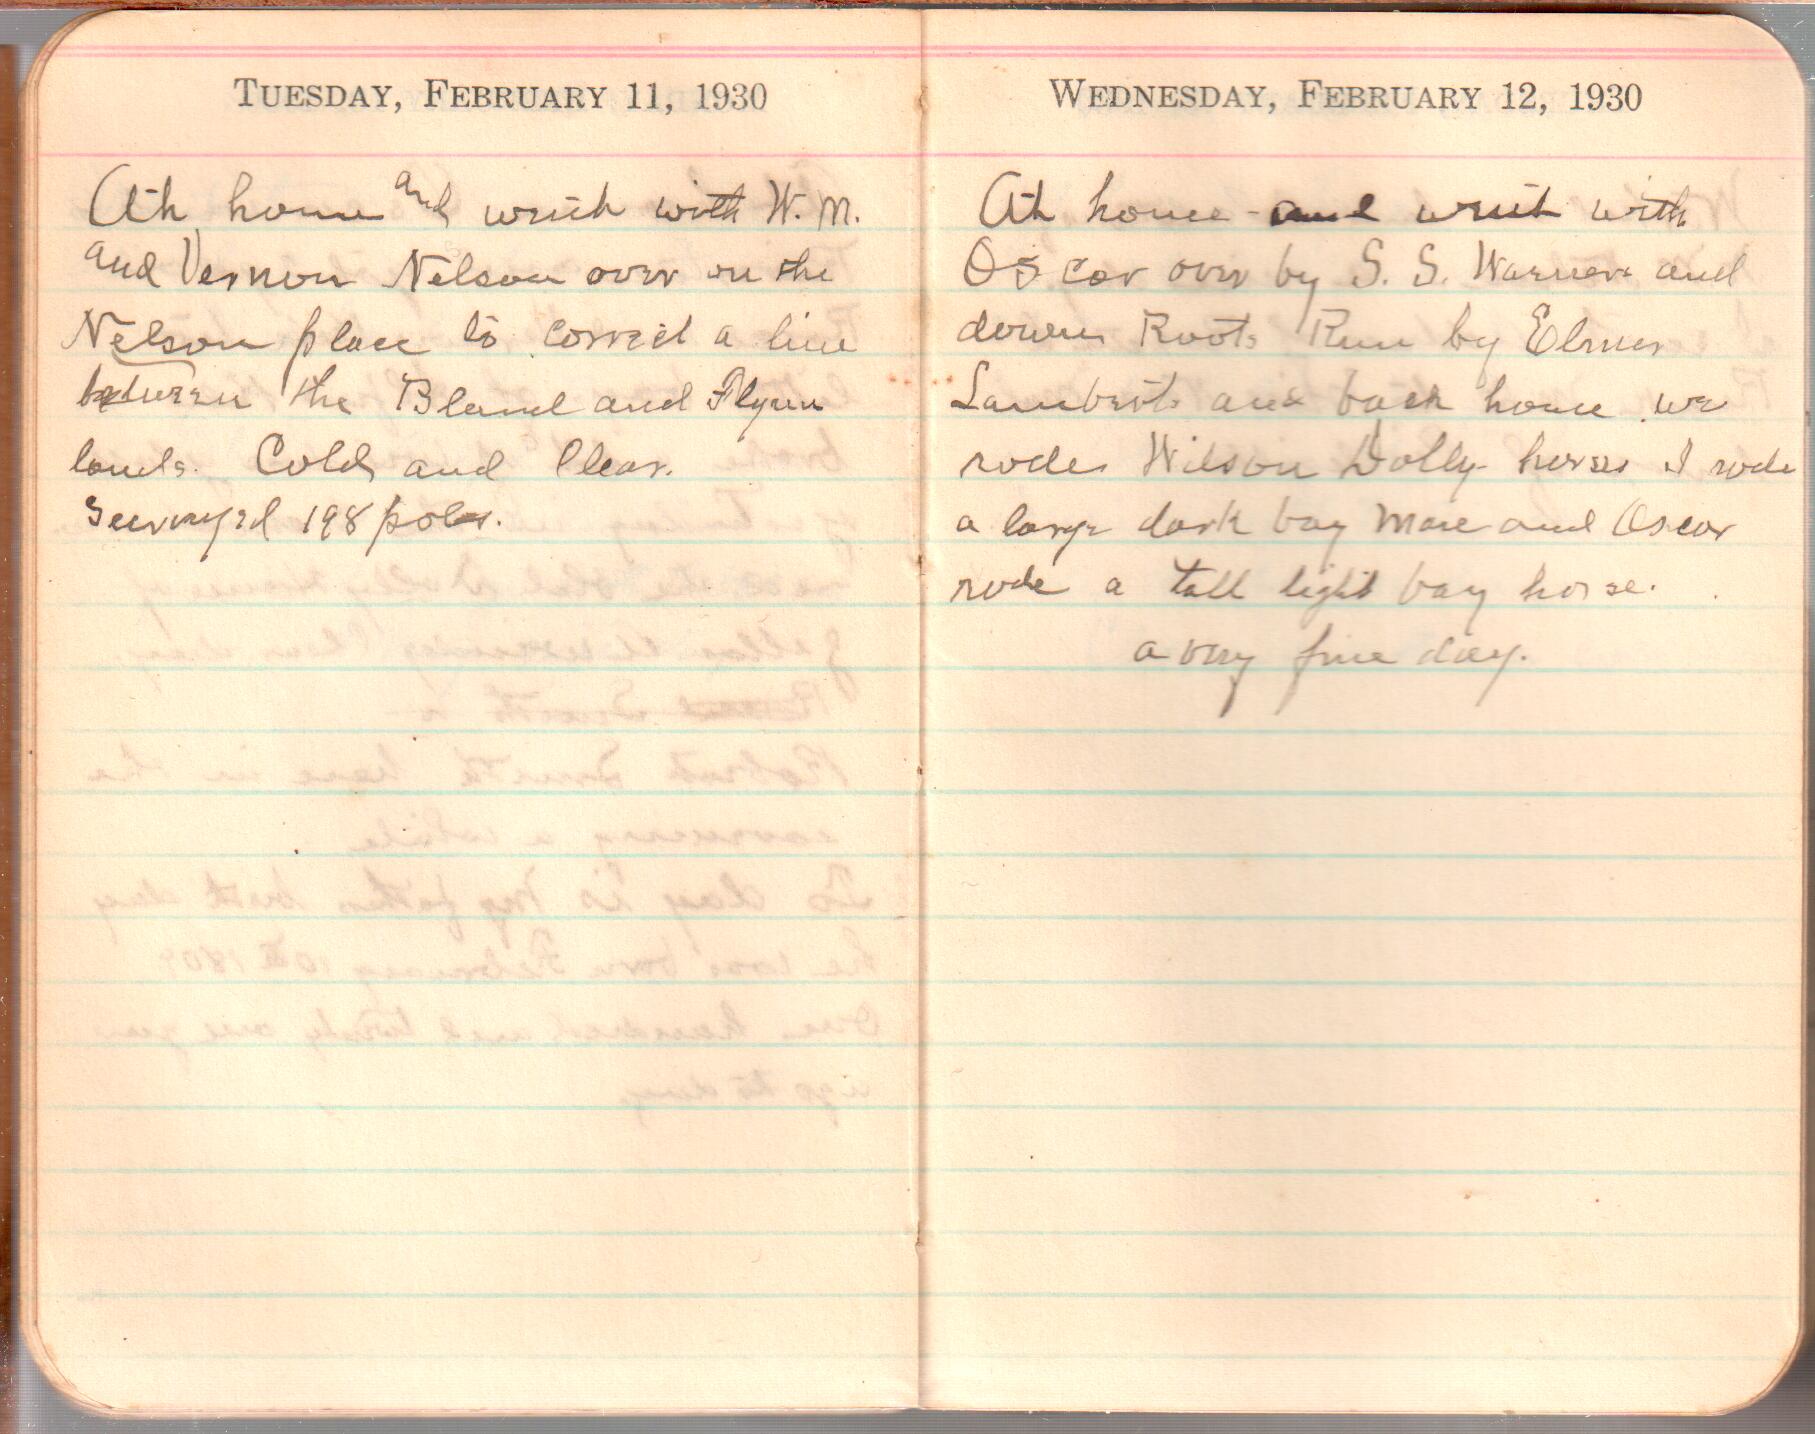 TUESDAY, FEBRUARY 11, 1930
At home and went with W. M.
and Vernon Nelson over on the
Nelson place to correct a line
between the Bland and Flynn
lands. Cold and Clear.
Surveyed 198 poles.
WEDNESDAY, FEBRUARY 12, 1930
At home - and went with
Oscar over by S. S. Warners and
down Roots Run by Elmer
Lamberts and back home we
rode Wilson Dolly horses I rode
a large dark bay mare and Oscar
rode a tall light bay horse.
a very fine day.